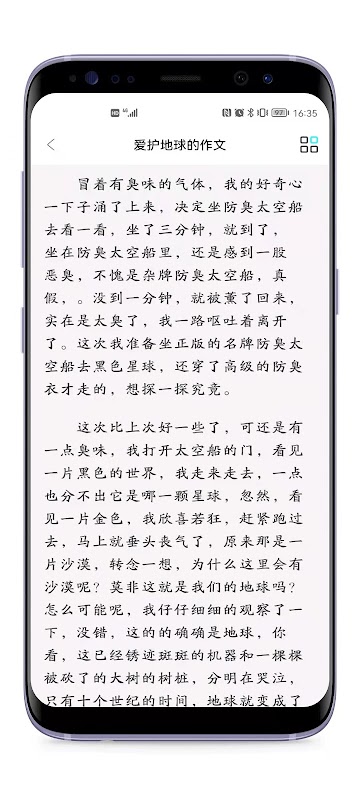 HD 4G 99 16:35
爱护地球的作文
冒着有臭味的气体，我的好奇心
一下子涌了上来，决定坐防臭太空船
去看一看，坐了三分钟，就到了，
坐在防臭太空船里，还是感到一股
恶臭，不愧是杂牌防臭太空船，真
假，。没到一分钟，就被薰了回来，
实在是太臭了，我一路呕吐着离开
了。这次我准备坐正版的名牌防臭太
空船去黑色星球，还穿了高级的防臭
衣才走的，想探一探究竟。
这次比上次好一些了，可还是有
一点臭味，我打开太空船的门，看见
一片黑色的世界，我走来走去，一点
也分不出它是哪一颗星球，忽然，看
见一片金色，我欣喜若狂，赶紧跑过
去，马上就垂头丧气了，原来那是一
片沙漠，转念一想，为什么这里会有
沙漠呢？莫非这就是我们的地球吗？
怎么可能呢，我仔仔细细的观察了一
下，没错，这的的确确是地球，你
看，这已经锈迹斑斑的机器和一棵棵
被砍了的大树的树桩，分明在哭泣，
只有十个世纪的时间，地球就变成了